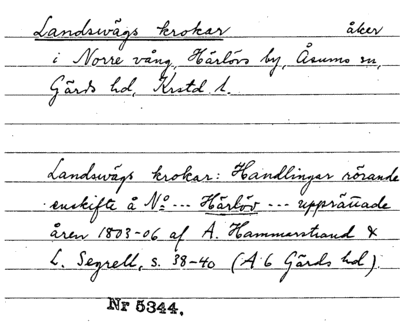 Landswägs krokar åker
i Norre vång, Härlövs by, Åsums sn,
Gärds hd, Krstd l.
Landswägs krokar: Handlingar rörande
enskifte å No --- Härlöv --- upprättade
åren 1803-06 af A. Hammarstrand &
L. Segrell, s. 38-40 (A 6 Gärds hd).
Nr 5344.